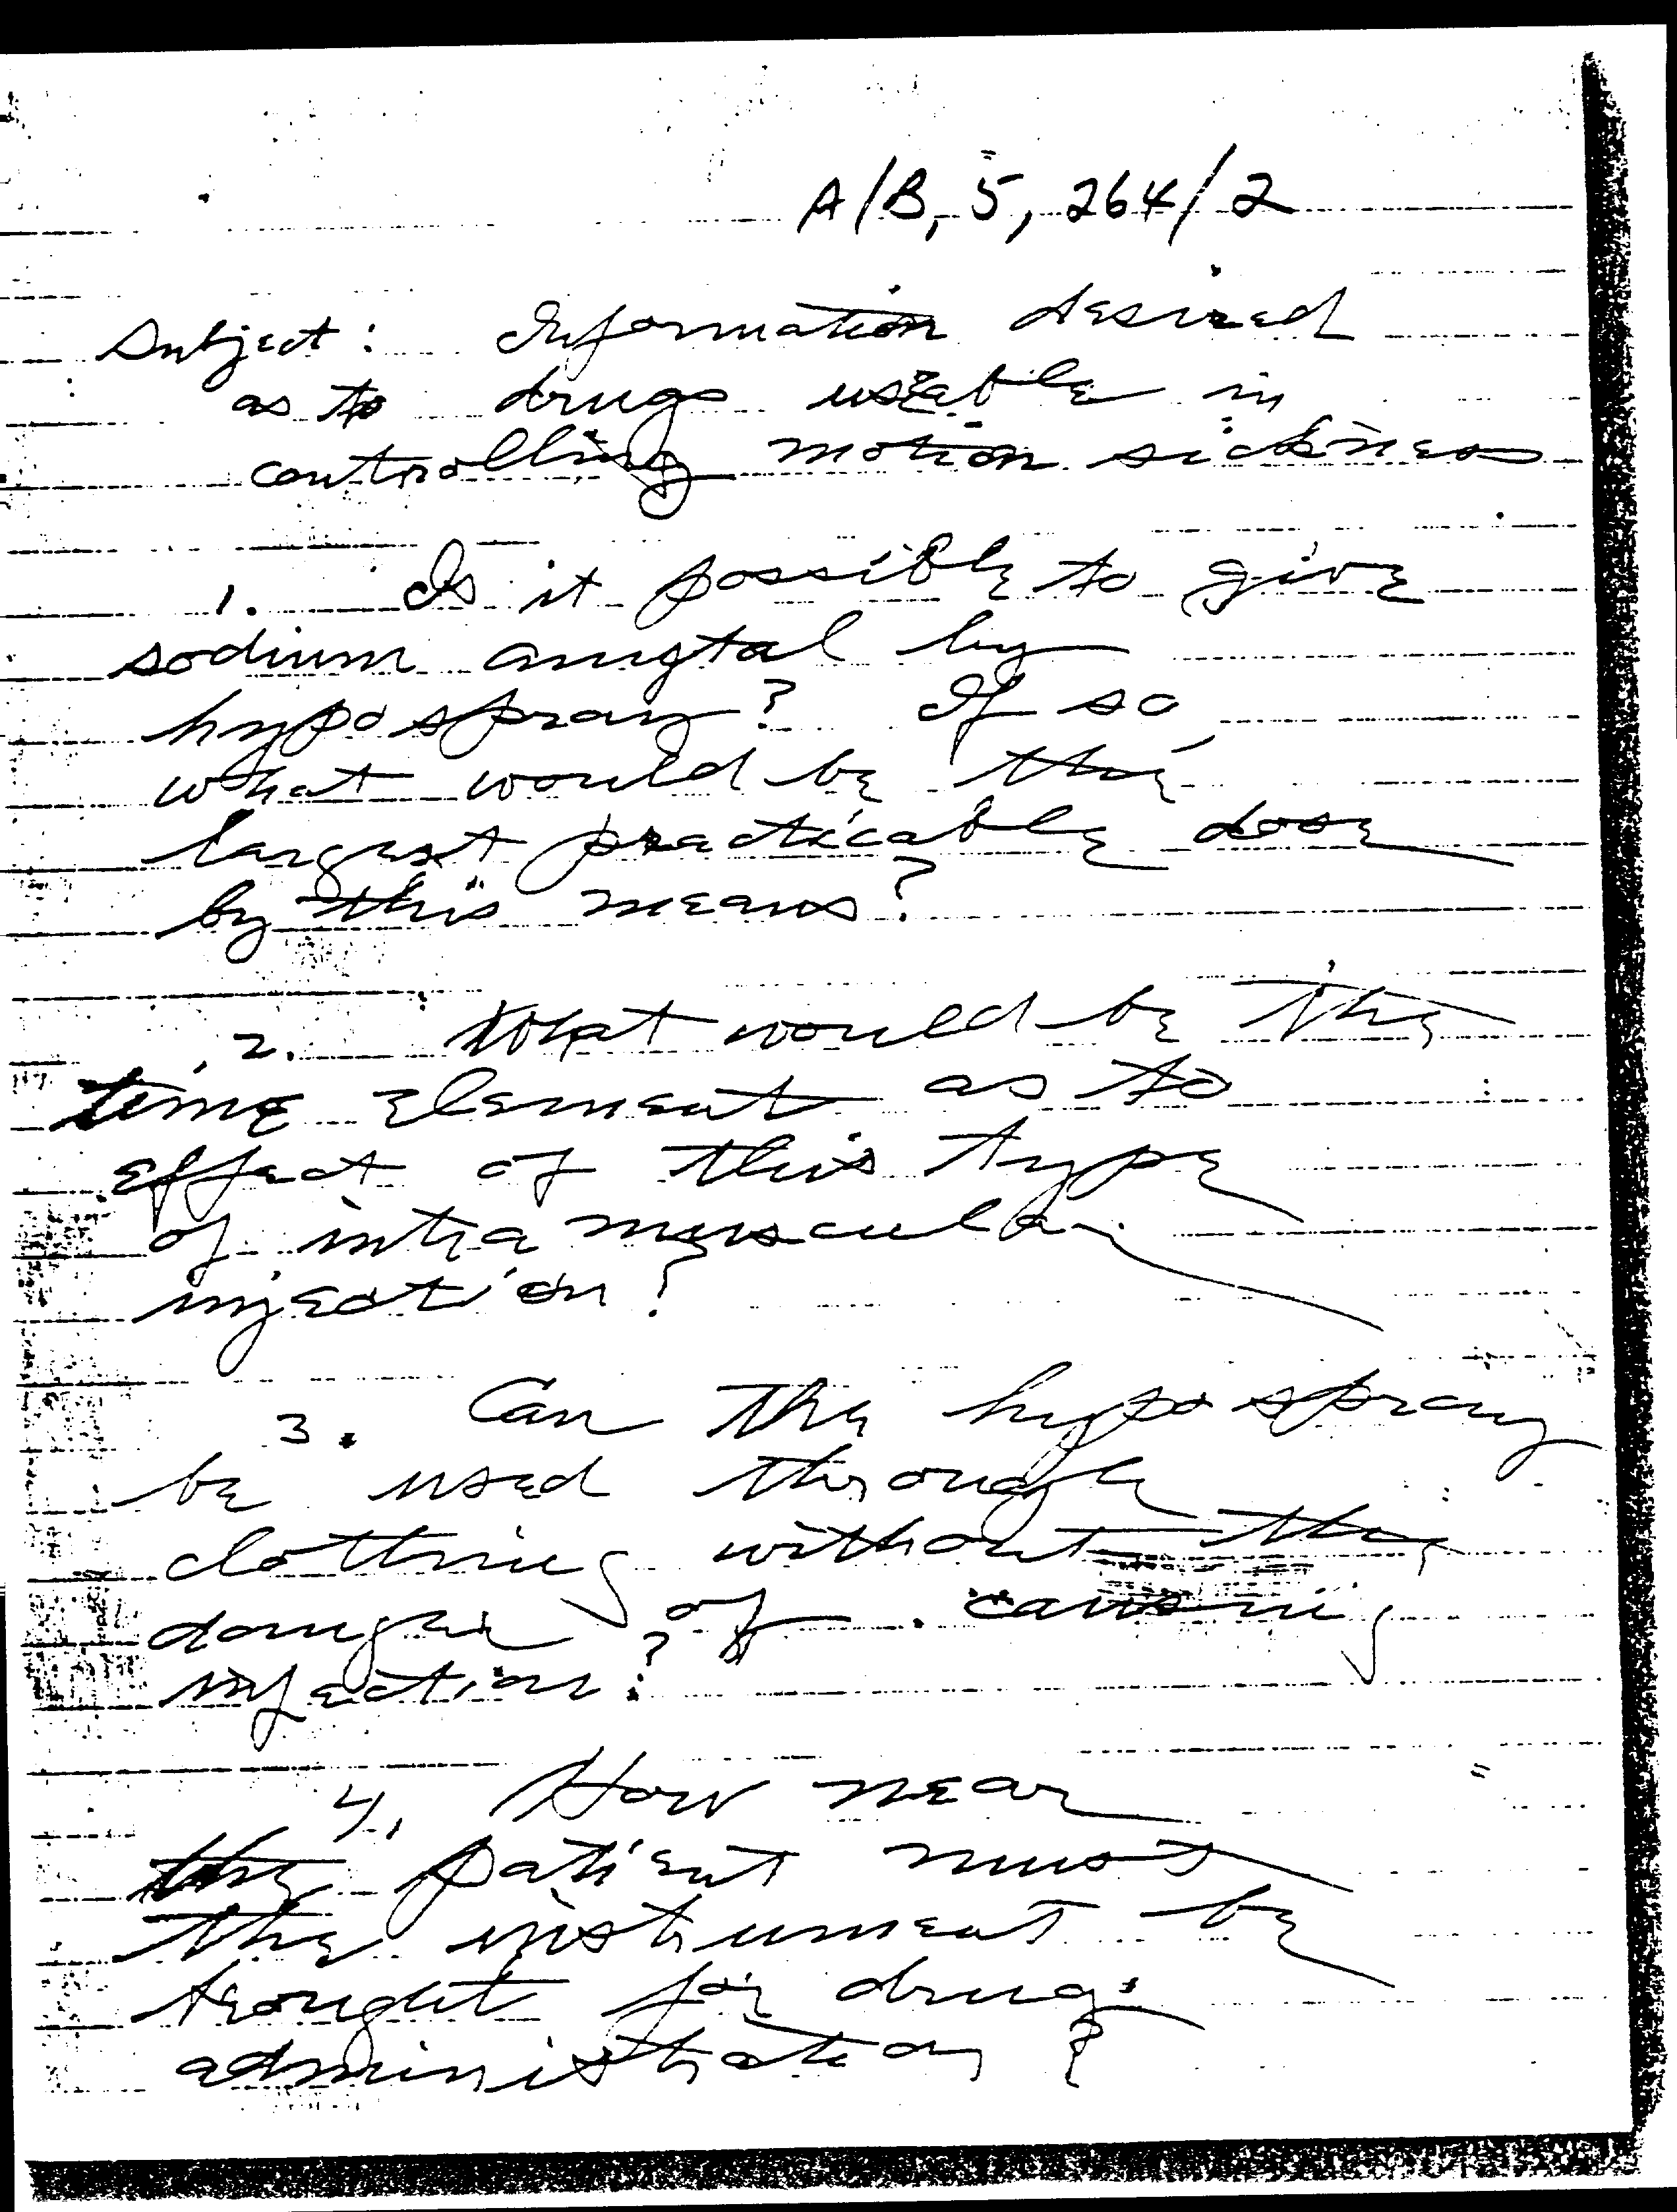 A/B, 5, 264/2
Subject: Information desired
as to drugs useable in
controlling motion sickness
1. Is it possible to give
sodium amytal by
hypospray? If so,
what would be the
largest practicable dose
by this means?
2. What would be the
time element as to
effect of this type
of intra muscular
injection?
3. Can the hypospray
be used through
clothing without the
danger of causing
infection?
4. How near
the patient must
the instrument be
brought for drug
administration?